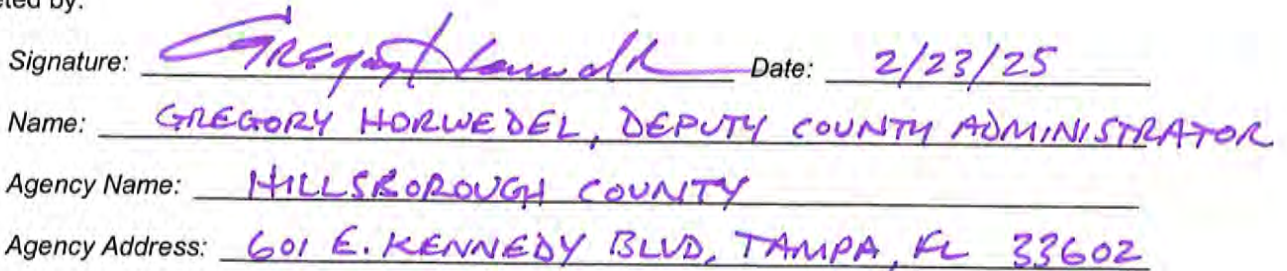 eted by:
Signature: Gregory Horwedel Date: 2/23/25
Name: GREGORY HORWEDEL, DEPUTY COUNTY ADMINISTRATOR
Agency Name: HILLSBOROUGH COUNTY
Agency Address: 601 E. KENNEDY BLVD, TAMPA, FL 33602